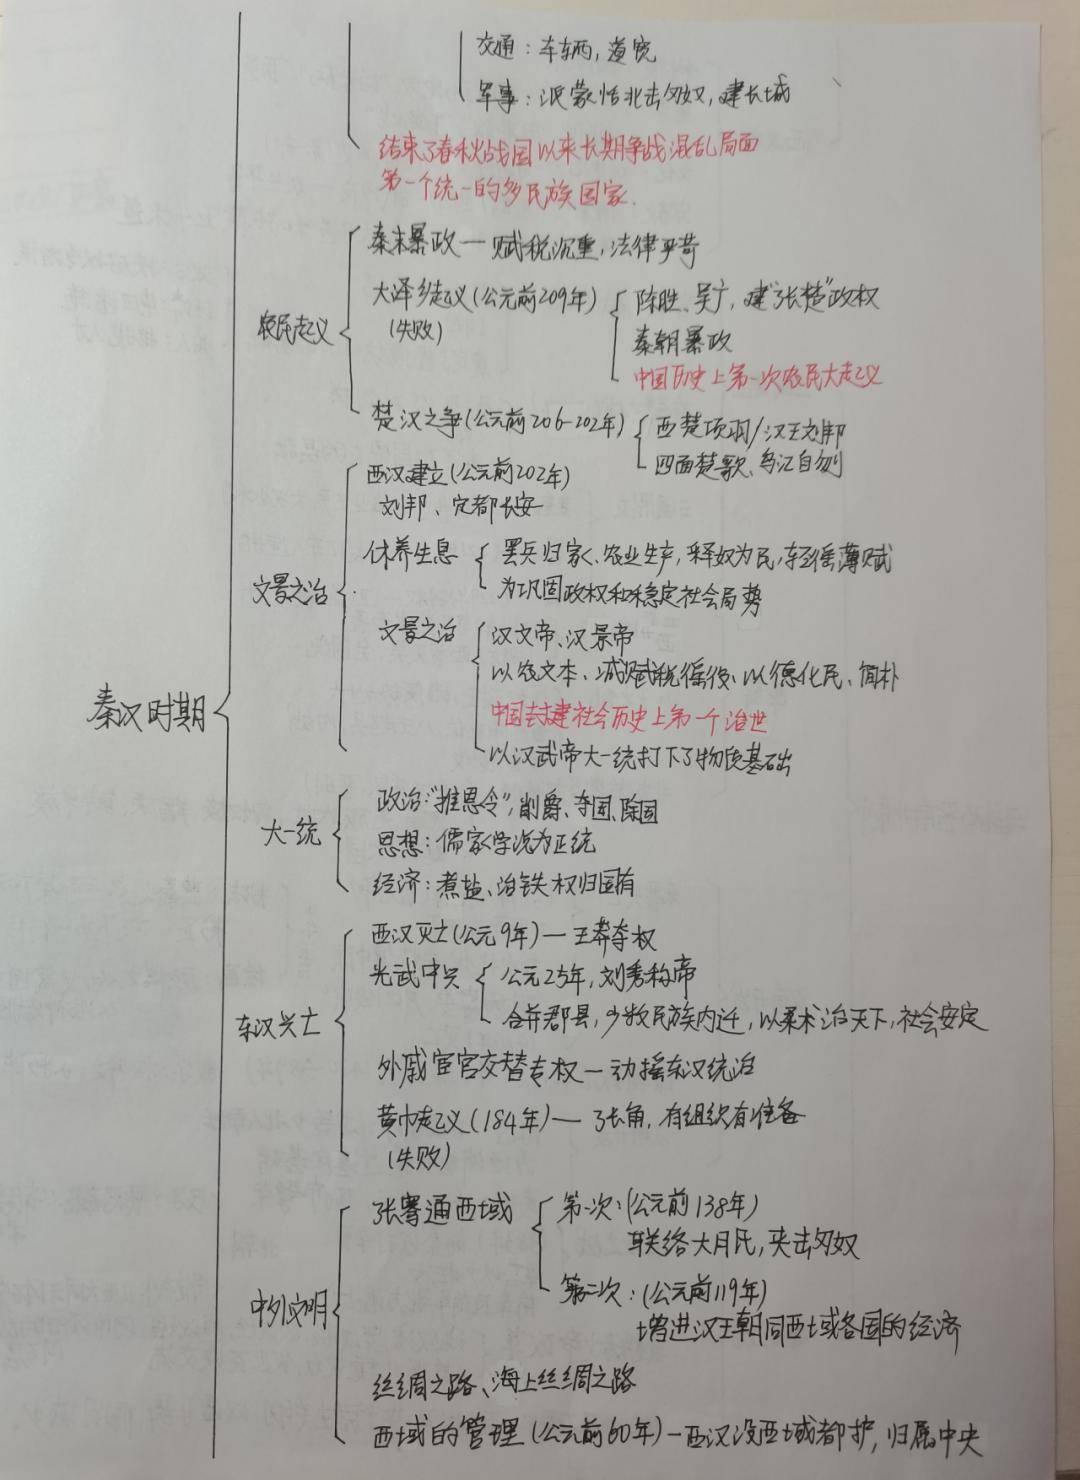 交通：车辆，道宽
军事：派蒙恬北击匈奴，建长城
结束了春秋战国以来长期争战混乱局面
第一个统一的多民族国家.
秦末暴政一赋税沉重，法律严苛
大泽乡起义(公元前209年)
(失败)
陈胜、吴广，建"张楚"政权
秦朝暴政
中国历史上第一次农民大起义
农民起义
楚汉之争(公元前206-202年)
西楚项羽/汉王刘邦
四面楚歌、乌江自刎
西汉建立(公元前202年)
刘邦、定都长安
休养生息
罢兵归家、农业生产，释奴为民，轻徭薄赋
为巩固政权和稳定社会局势
文景之治
文景之治
汉文帝、汉景帝
以农文本、减赋税徭役、以德化民、简朴
中国封建社会历史上第一个治世
以汉武帝大一统打下了物质基础
秦汉时期
大一统
政治："推恩令"，削爵、夺国、除国
思想：儒家学说为正统
经济：煮盐、冶铁权归国有
西汉灭亡(公元9年)一王莽夺权
光武中兴
公元25年，刘秀称帝
合并郡县，少数民族内迁，以柔术治天下，社会安定
东汉兴亡
外戚宦官交替专权一动摇东汉统治
黄巾起义(184年)一张角，有组织有准备
(失败)
张骞通西域
第一次：(公元前138年)
联络大月氏，夹击匈奴
第二次：(公元前119年)
增进汉王朝同西域各国的经济
中外文明
丝绸之路、海上丝绸之路
西域的管理(公元前60年)一西汉设西域都护，归属中央